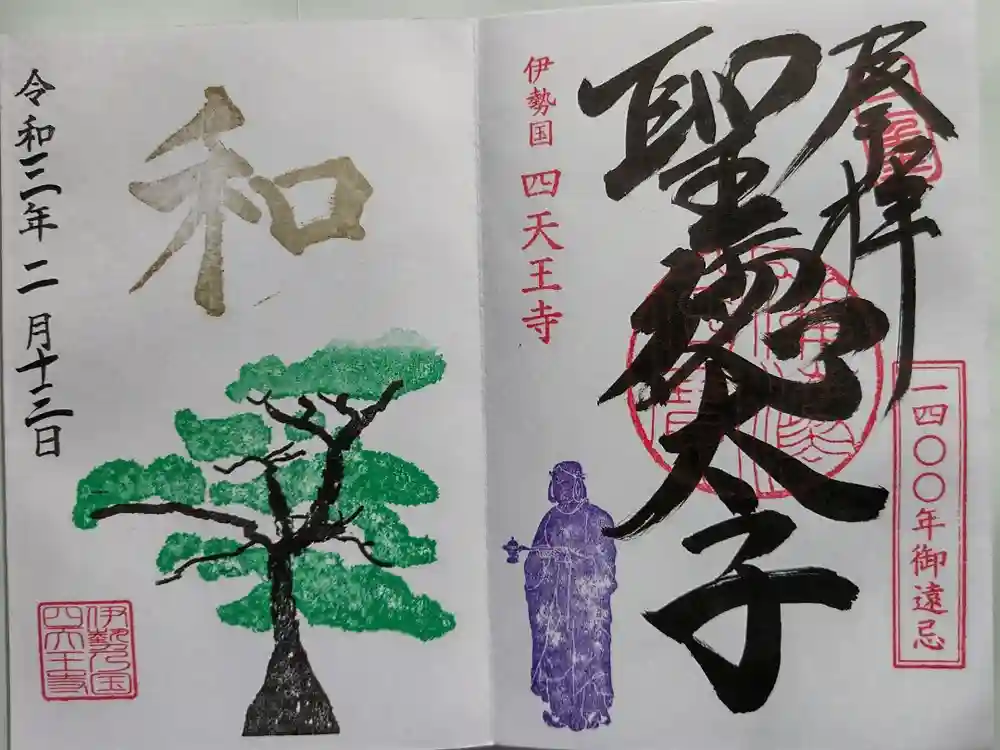 奉拝
聖徳太子
一四〇〇年御遠忌
伊勢国 四天王寺
和
令和三年二月十三日
伊勢乃国
四天王寺